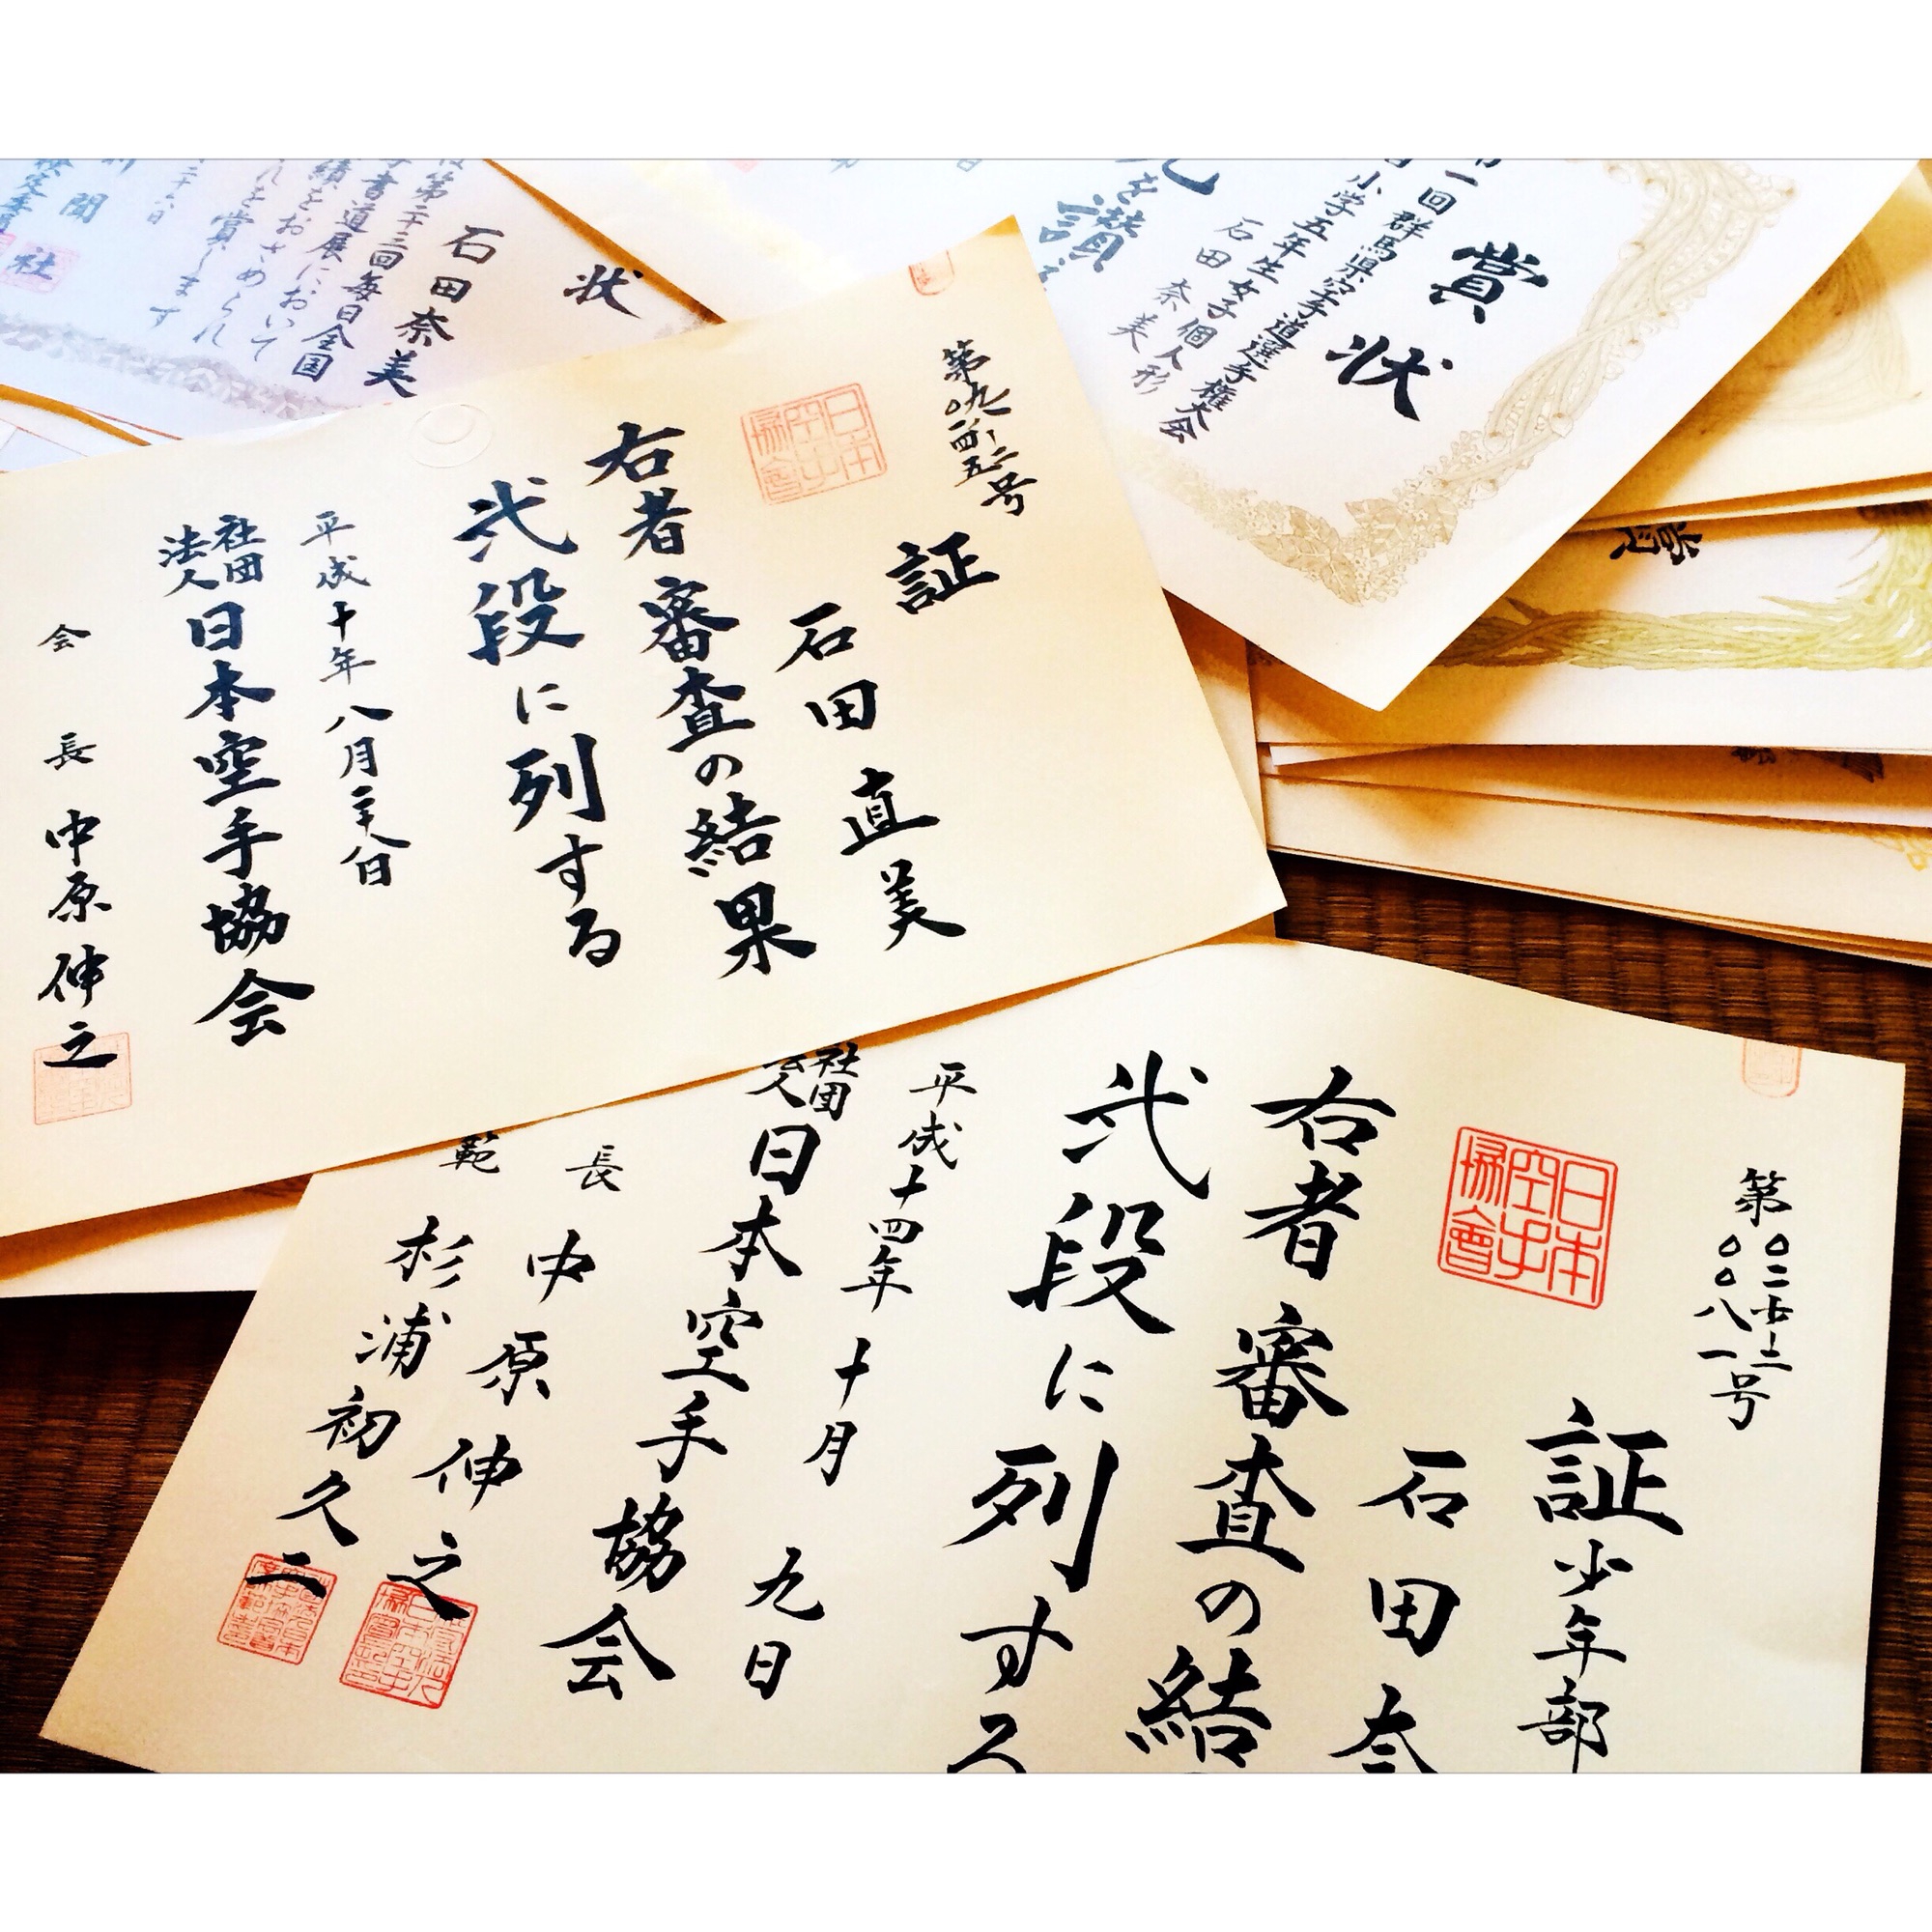 第
号
証
石田直美
右者審査の結果
弐段に列する
平成十年八月二十八日
社団
法人
日本空手協会
会長 中原伸之
日本空手協會
第〇二古十二
〇〇八一号
証 少年部
石田奈
右者審査の結
弐段に列する
平成十四年十月九日
社団
日本空手協会
長 中原伸之
範 杉浦初久二
日本空手協會
賞状
一回群馬県空手道選手権大会
小学五年生女子個人形
石田奈美
を讃
状
石田奈美
第二十三回毎日全国
書道展において
績をおさめられ
れを賞します
聞
社
賞